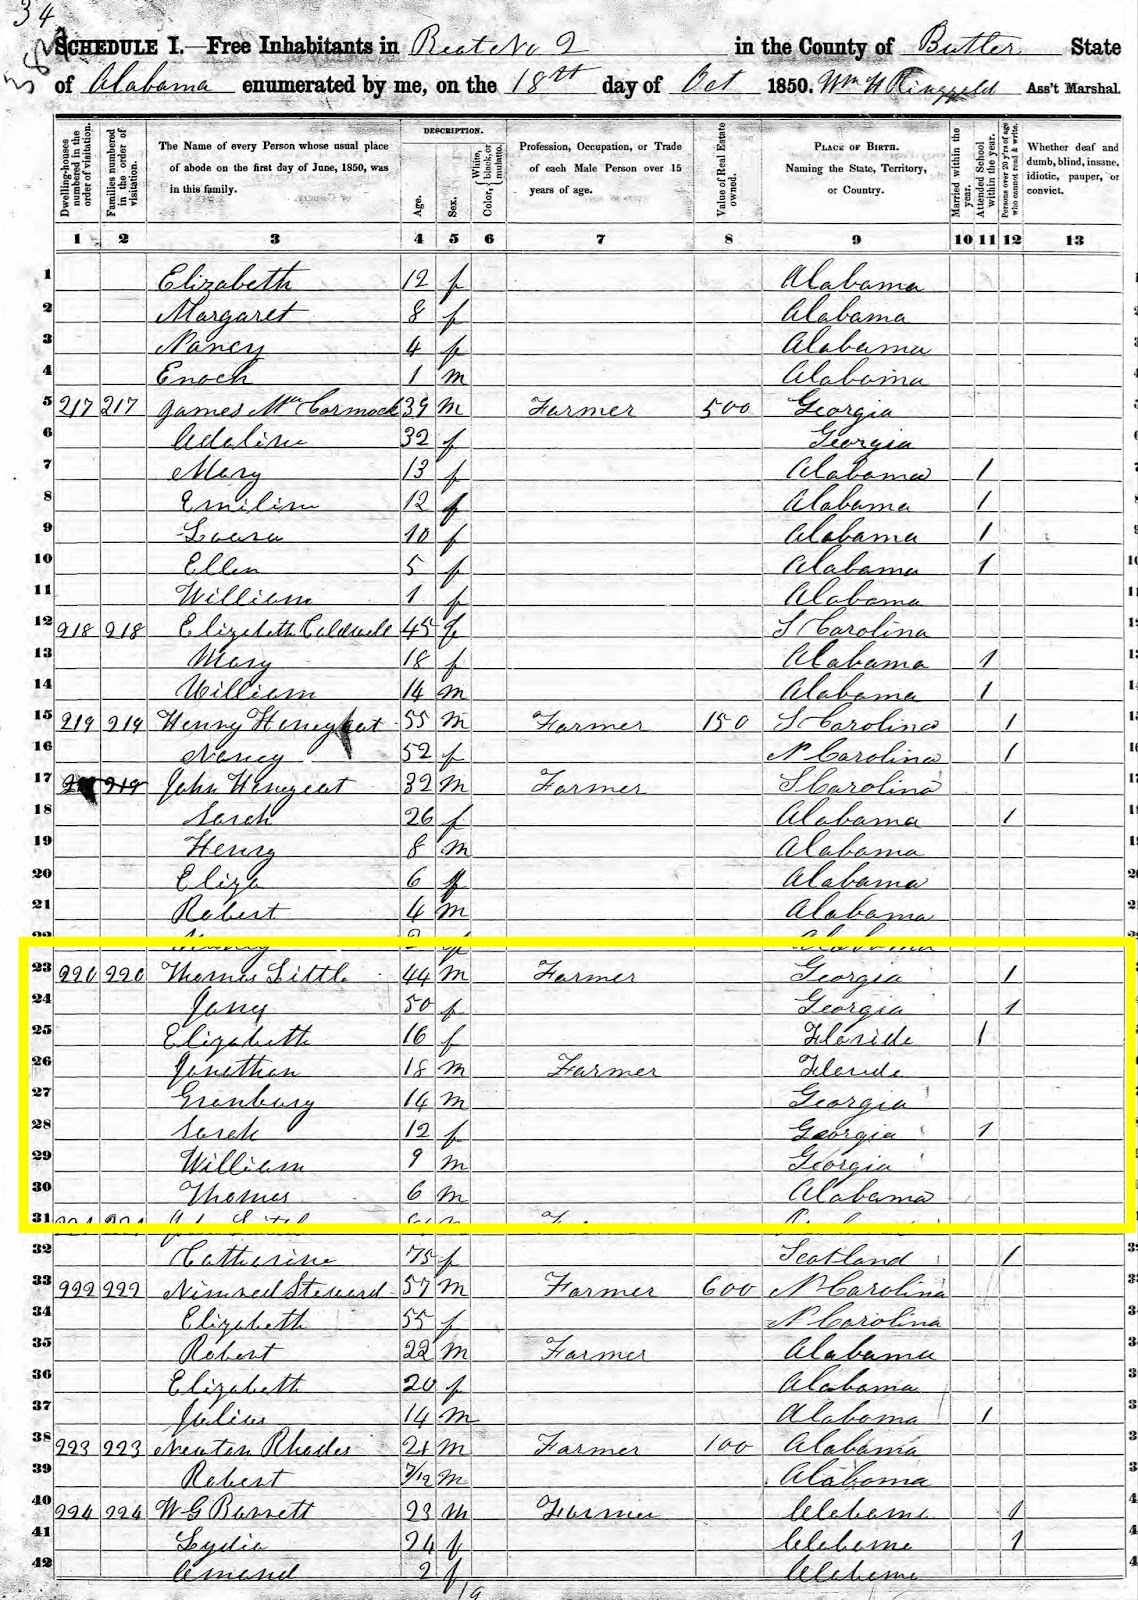 34
SCHEDULE I.—Free Inhabitants in Beat No 2 in the County of Butler State
of Alabama enumerated by me, on the 18th day of Oct 1850. Wm H Ringgold Ass't Marshal.
DESCRIPTION.
Dwelling-houses numbered in the order of visitation.
Families numbered in the order of visitation.
The Name of every Person whose usual place of abode on the first day of June, 1850, was in this family.
Age.
Sex.
Color, { White, black, or mulatto.
Profession, Occupation, or Trade of each Male Person over 15 years of age.
Value of Real Estate owned.
PLACE OF BIRTH. Naming the State, Territory, or Country.
Married within the year.
Attended School within the year.
Persons over 20 y'rs of age who cannot read & write.
Whether deaf and dumb, blind, insane, idiotic, pauper, or convict.
1 2 3 4 5 6 7 8 9 10 11 12 13
1 Elizabeth 12 f Alabama
2 Margaret 8 f Alabama
3 Nancy 4 f Alabama
4 Enoch 1 m Alabama
5 217 217 James McCormack 39 m Farmer 500 Georgia
6 Adaline 32 f Georgia
7 Mary 13 f Alabama 1
8 Emiline 12 f Alabama 1
9 Louisa 10 f Alabama 1
10 Ellen 5 f Alabama 1
11 William 1 f Alabama
12 218 218 Elizabeth Caldwell 45 f S Carolina
13 Mary 18 f Alabama 1
14 William 14 m Alabama 1
15 219 219 Henry 55 m Farmer 150 S Carolina 1
16 Nancy 52 f N Carolina 1
17 219 John 32 m Farmer S Carolina
18 Sarah 26 f Alabama 1
19 Henry 8 m Alabama
20 Eliza 6 f Alabama
21 Robert 4 m Alabama
22
23 220 220 Thomas Little 44 m Farmer Georgia 1
24 Jancy 50 f Georgia 1
25 Elizabeth 16 f Floride 1
26 Jonathan 18 m Farmer Floride
27 Granbury 14 m Georgia
28 Sarah 12 f Georgia 1
29 William 9 m Georgia
30 Thomas 6 m Alabama
31
32 Catharine 75 f Scotland 1
33 222 222 Nimrod Steward 57 m Farmer 600 N Carolina
34 Elizabeth 55 f N Carolina
35 Robert 22 m Farmer Alabama
36 Elizabeth 20 f Alabama
37 Julius 14 m Alabama 1
38 223 223 Newton Rhodes 21 m Farmer 100 Alabama
39 Robert 7/12 m Alabama
40 224 224 W G Barrett 23 m Farmer Alabama 1
41 Lydia 24 f Alabama 1
42 Amand 2 f Alabama